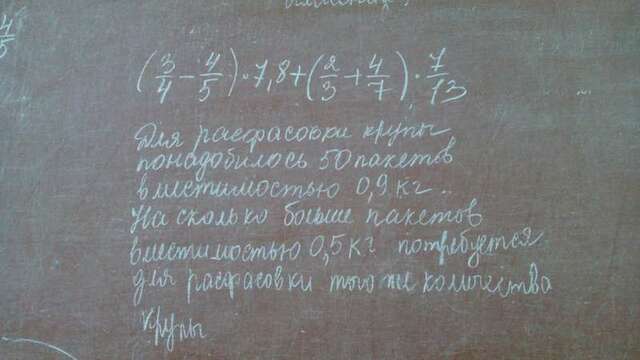 4/5
(3/4 - 4/5) · 7,8 + (2/3 + 4/7) · 7/13
Для расфасовки крупы
понадобилось 50 пакетов
вместимостью 0,9 кг.
На сколько больше пакетов
вместимостью 0,5 кг потребуется
для расфасовки того же количества
крупы